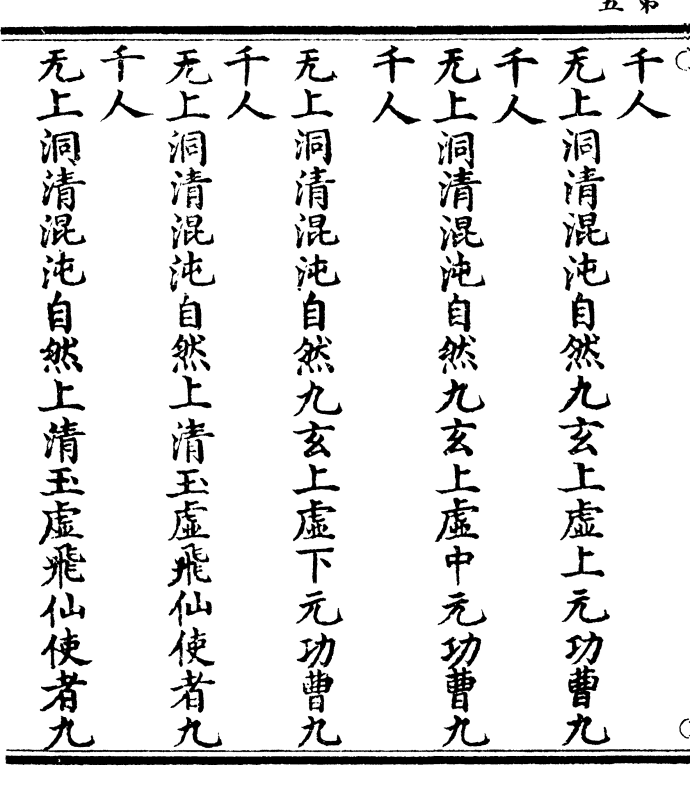 第五
千人
无上洞清混沌自然九玄上虛上元功曹九
千人
无上洞清混沌自然九玄上虛中元功曹九
千人
无上洞清混沌自然九玄上虛下元功曹九
千人
无上洞清混沌自然上清玉虛飛仙使者九
千人
无上洞清混沌自然上清玉虛飛仙使者九